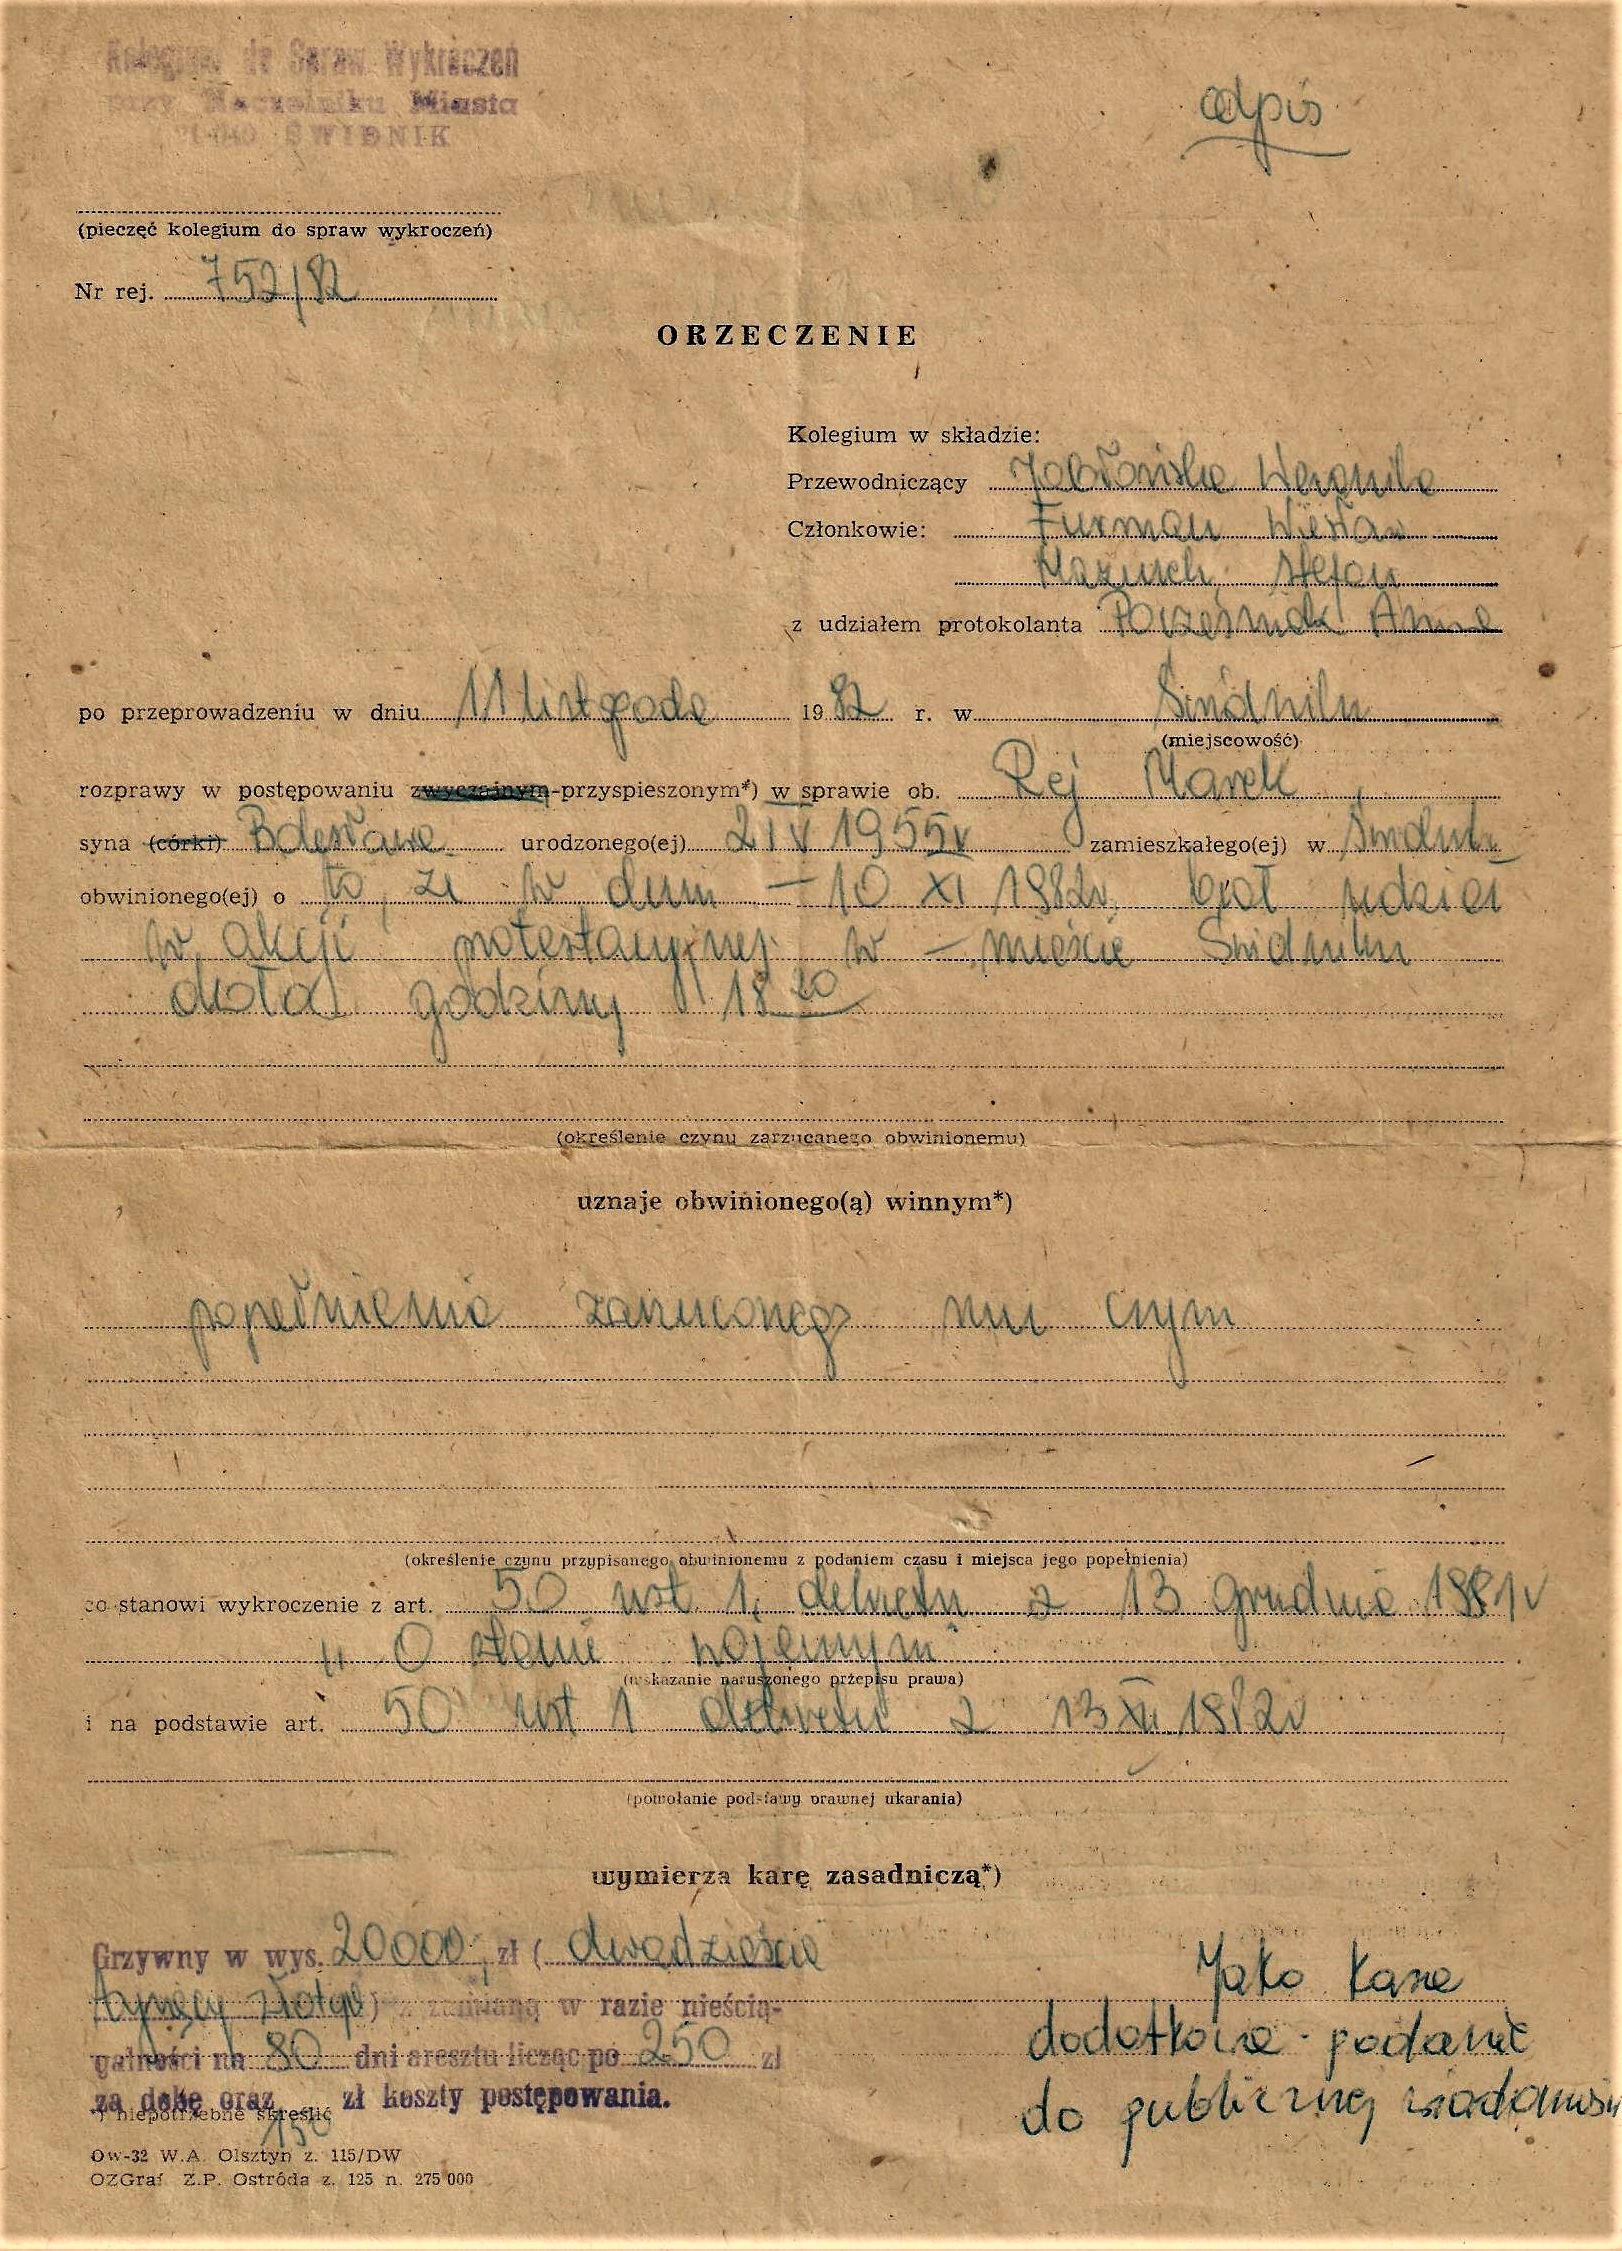 Kolegium do Spraw Wykroczeń
przy Naczelniku Miasta
ŚWIDNIK
odpis
(pieczęć kolegium do spraw wykroczeń)
Nr rej. 752/82
ORZECZENIE
Kolegium w składzie:
Przewodniczący Jabłońska Weronika
Członkowie: Furman Wiesław
Mazurek Stefan
z udziałem protokolanta Anna
po przeprowadzeniu w dniu 11 listopada 1982 r. w Świdniku
(miejscowość)
rozprawy w postępowaniu zwyczajnym-przyspieszonym*) w sprawie ob. Rej Marek
syna (córki) Bolesława urodzonego(ej) 2 IV 1955r zamieszkałego(ej) w Świdnik
obwinionego(ej) o to, że w dniu – 10 XI 1982r. brał udział
w akcji protestacyjnej w – mieście Świdniku
około godziny 18 20
(określenie czynu zarzucanego obwinionemu)
uznaje obwinionego(ą) winnym*)
popełnienia zarzuconego mu czynu
(określenie czynu przypisanego obwinionemu z podaniem czasu i miejsca jego popełnienia)
co stanowi wykroczenie z art. 50 ust 1. dekretu z 13 grudnia 1981r
"O stanie wojennym"
(wskazanie naruszonego przepisu prawa)
i na podstawie art. 50 ust 1 dekretu z 13 XII 1982r
(powołanie podstawy prawnej ukarania)
wymierza karę zasadniczą*)
Grzywny w wys. 20000, zł ( dwadzieścia
tysięcy złotych) z zamianą w razie nieścią-
galności na 80 dni aresztu licząc po 250 zł
za dobę oraz 150 zł koszty postępowania.
Jako karę
dodatkową podanie
do publicznej wiadomości
*) niepotrzebne skreślić
Ow-32 W.A. Olsztyn z. 115/DW
OZGraf Z.P. Ostróda z. 125 n. 275 000